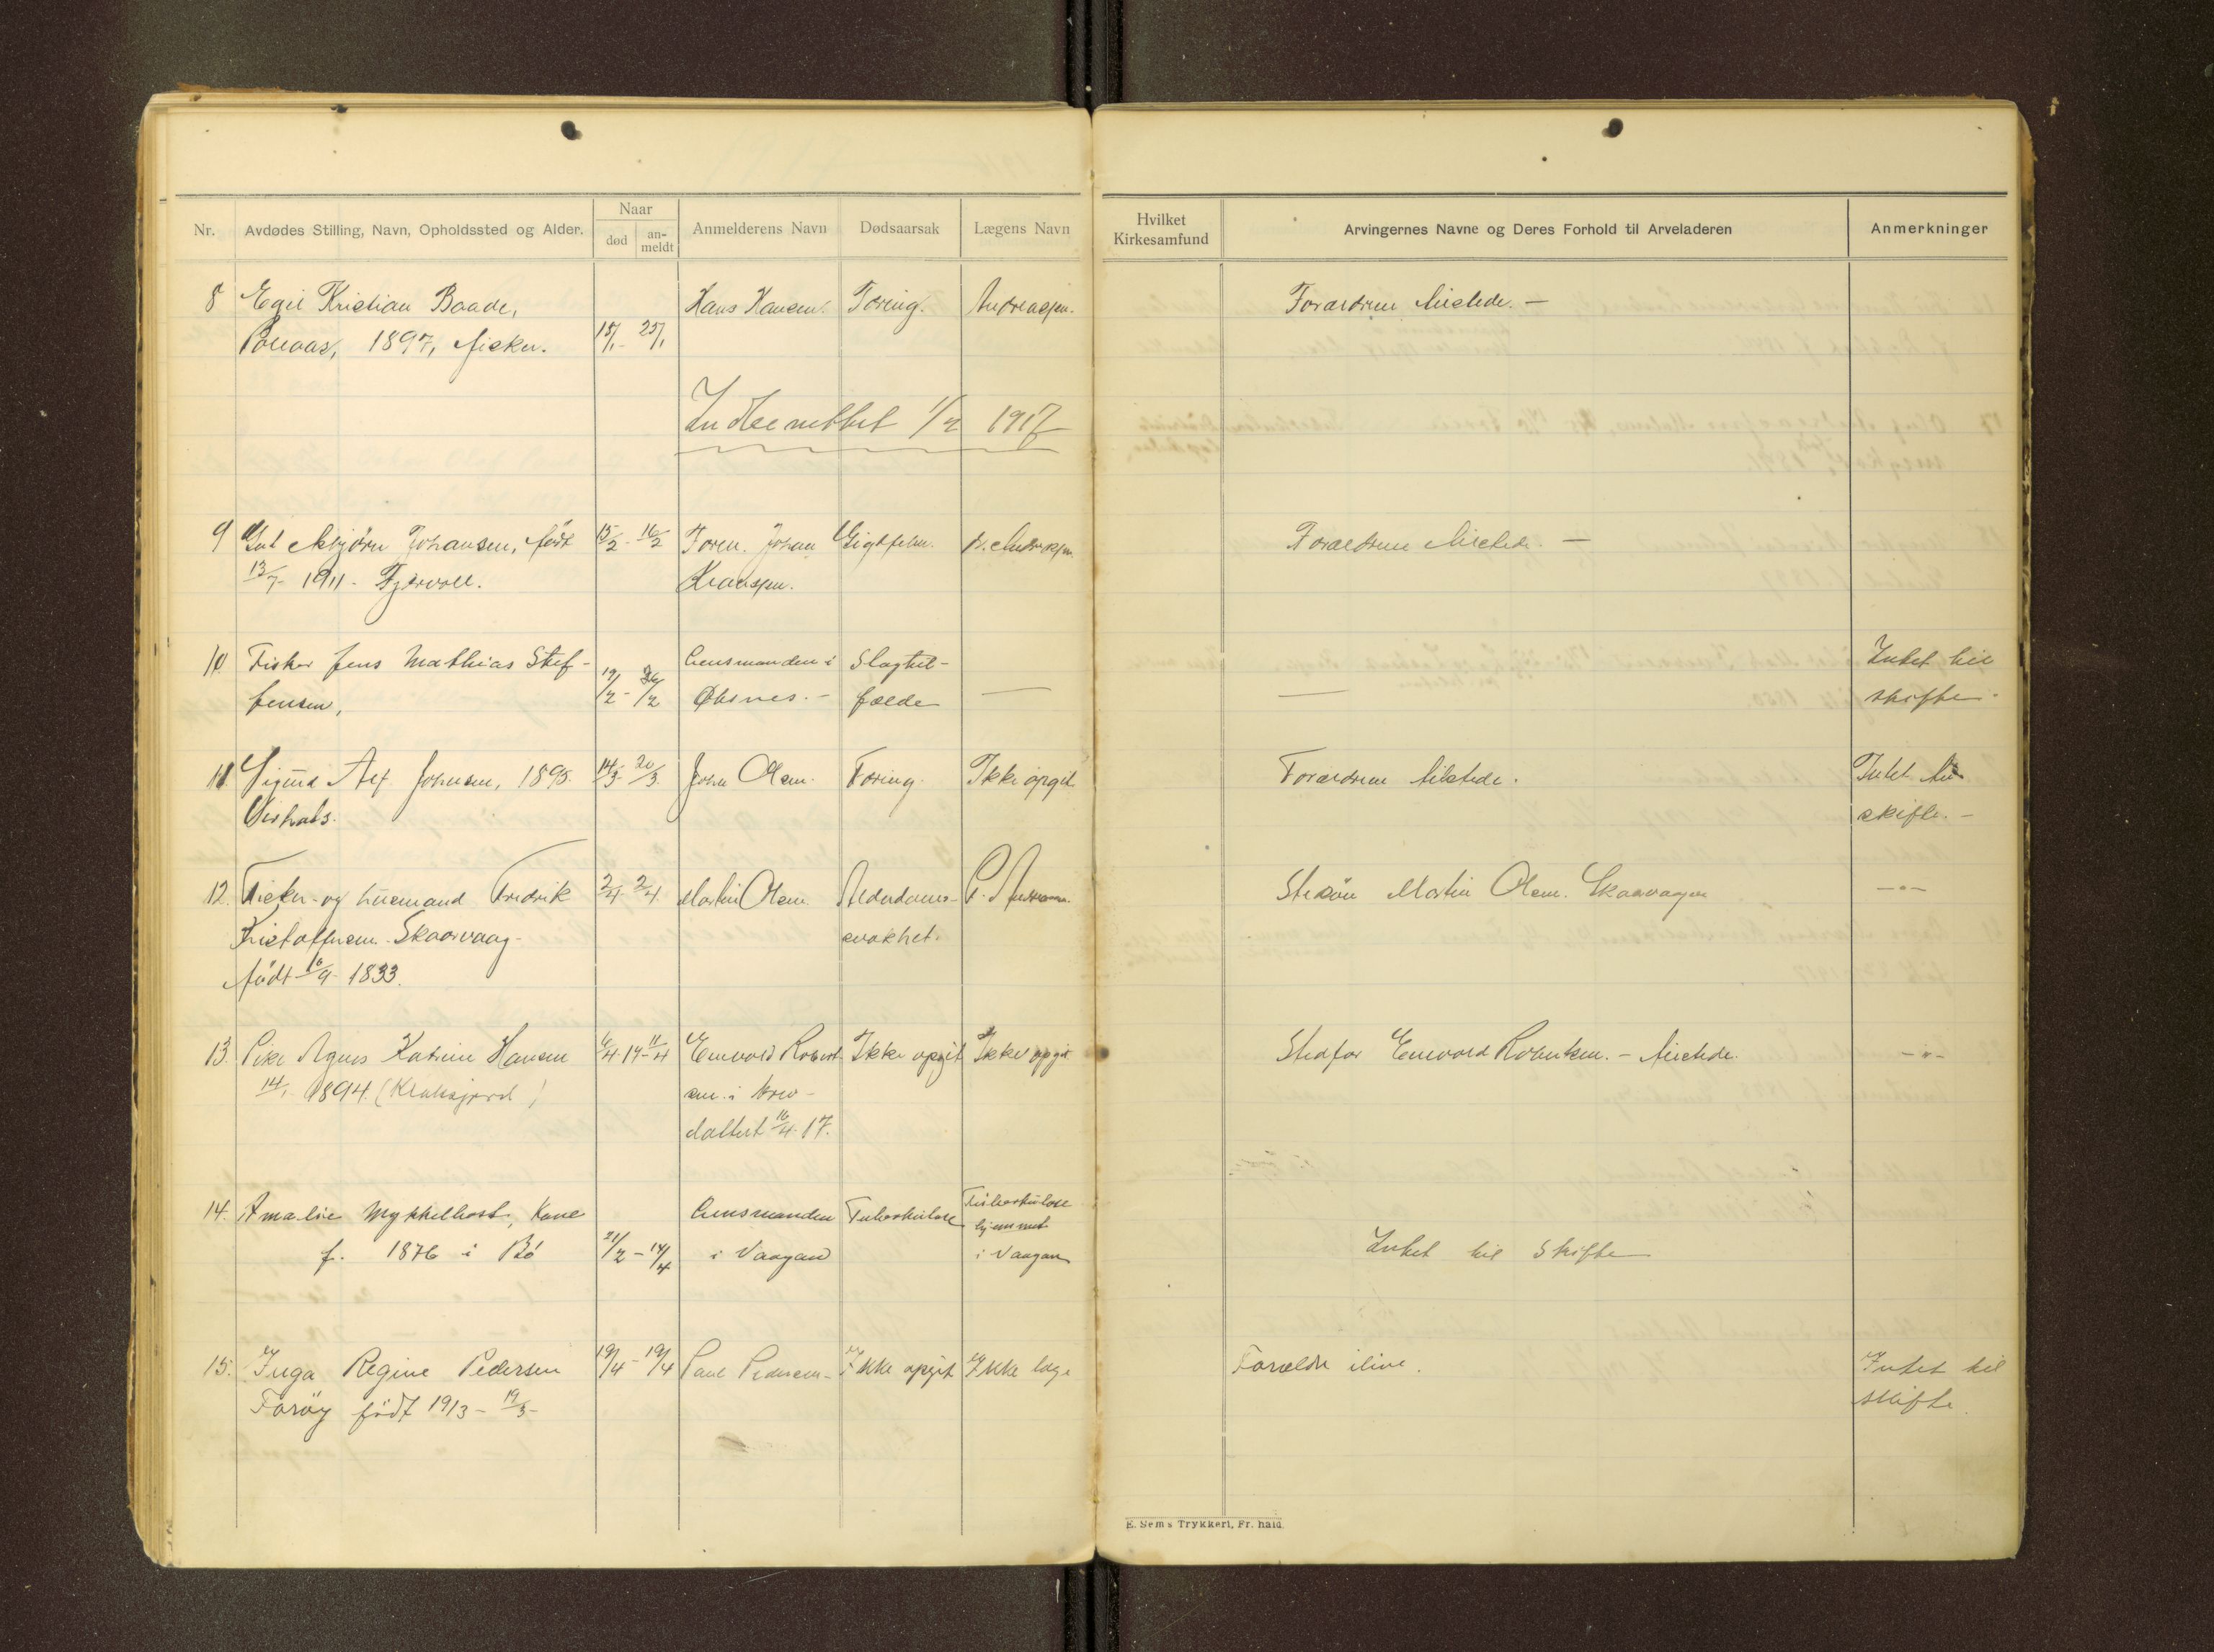 Nr.
Avdødes Stilling, Navn, Opholdssted og Alder.
Naar
død
an-
meldt
Anmelderens Navn
Dødsaarsak
Lægens Navn
Hvilket
Kirkesamfund
Arvingernes Navne og Deres Forhold til Arveladeren
Anmerkninger
8 Egil Kristian Baade, Hans Hansen. Tæring. Andreassen. Forældrene tilstede. —
1897, fisker. 18/1 - 25/1
1/2 1917
9 Gut Asbjørn Johansen, født 15/2 - 16/2 Foren. Johan Gigtfeber. Dr. Andreassen Forældrene tilstede. —
13/7 - 1911 - Fjærvoll.
10. Fisker Jens Mathias Stef- 19/2 - 26/2 Lensmanden i Slagtil- — — Intet til
fensen, Øksnes. - fælde skifte.
11. Alf Johnsen, 1895. 14/3 - 20/3 John Olsen. Tæring. Ikke opgit Forældrene tilstede. Intet til
skifte. -
12. Fisker- og husmand Fredrik 2/4 - 2/4 Martin Olsen. Alderdoms- Stesøn Martin Olsen. Skaarvaagen —"—
Kristoffersen. Skaarvaag- svakhet.
født 16/9 - 1833.
13. Pike Agnes Katrine Hansen 6/4 - 17 - 11/4 Edvard Robert- Ikke opgit Ikke opgit Stedfar Edvard Robertsen. - tilstede. —"—
14/1 - 1894. sen i brev
dattert 16/4 - 17.
14. Amalie Myklebost, Kone Lensmanden Tuberkulose Tuberkulose
hjemmet
f. 1876 i Bö 21/2 - 14/4 i Vaagan i Vaagan Intet til Skifte
15. Inga Regine Pedersen 19/4 - 19/4 Paul Pedersen - Ikke opgit Ikke læge Forældre ilive. Intet til
Tarøy født 1913 - 19/3 - skifte.
E. Sems Trykkeri, Fr. hald.